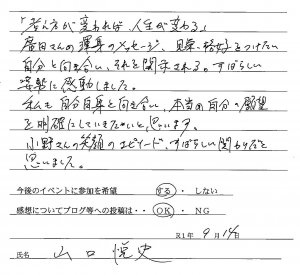 「考え方が変われば、人生が変わる」
廣田さんの渾身のメッセージ、見栄、格好をつけたい
自分と向き合い、それを開示される。すばらしい
姿勢に感動しました。
私も自分自身と向き合い、本当の自分の願望
を明確にしていきたいと思います。
小野さんの笑顔のエピソード、すばらしい関わりだと
思いました。
今後のイベントに参加を希望 する ・ しない
感想についてブログ等への投稿は・・ OK ・ NG
R1年 9月 14日
氏名 山口 悦史